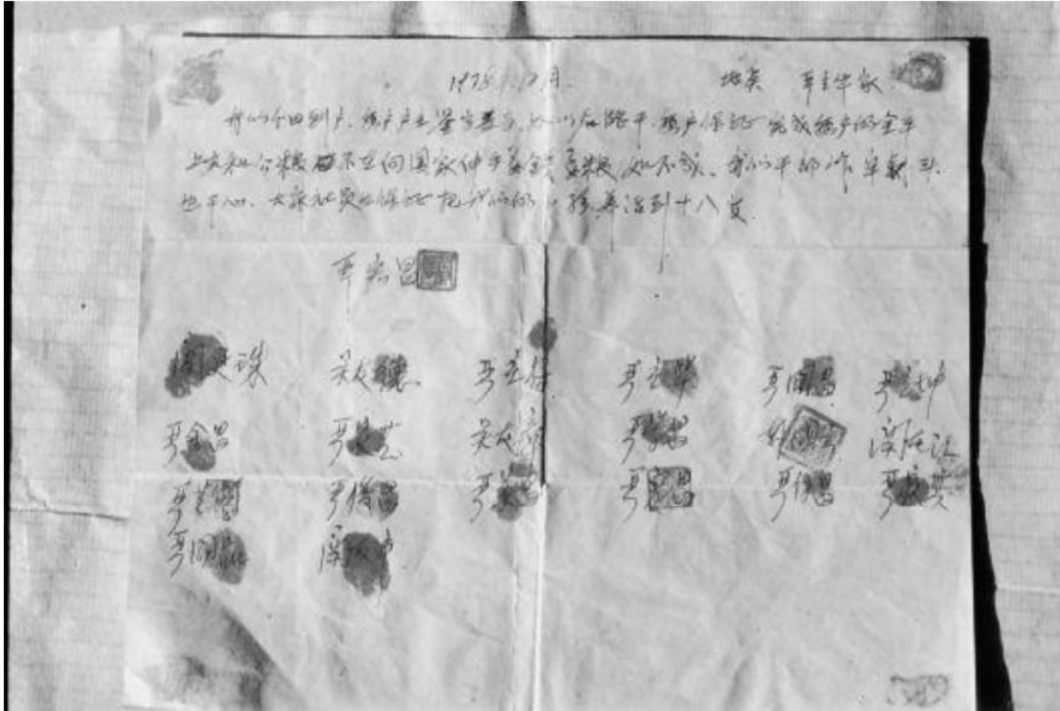 1978年12月. 地点 严立华家
我们分田到户,每户户主签字盖章,如以后能干,每户保证完成每户的全年
上交和公粮 不在向国家伸手要钱要粮,如不成,我们干部作牢 头
也干心,大家社员也保证把我们的小孩养活到十八岁.
严宏昌
关廷珠 关友德 严立符 严立华 严国昌 严立坤
严金昌 严家芝 关友章 严学昌 韩国云 关友江
严立学 严俊昌 严美昌 严宏昌 严付昌 严家其
严国品 关友申